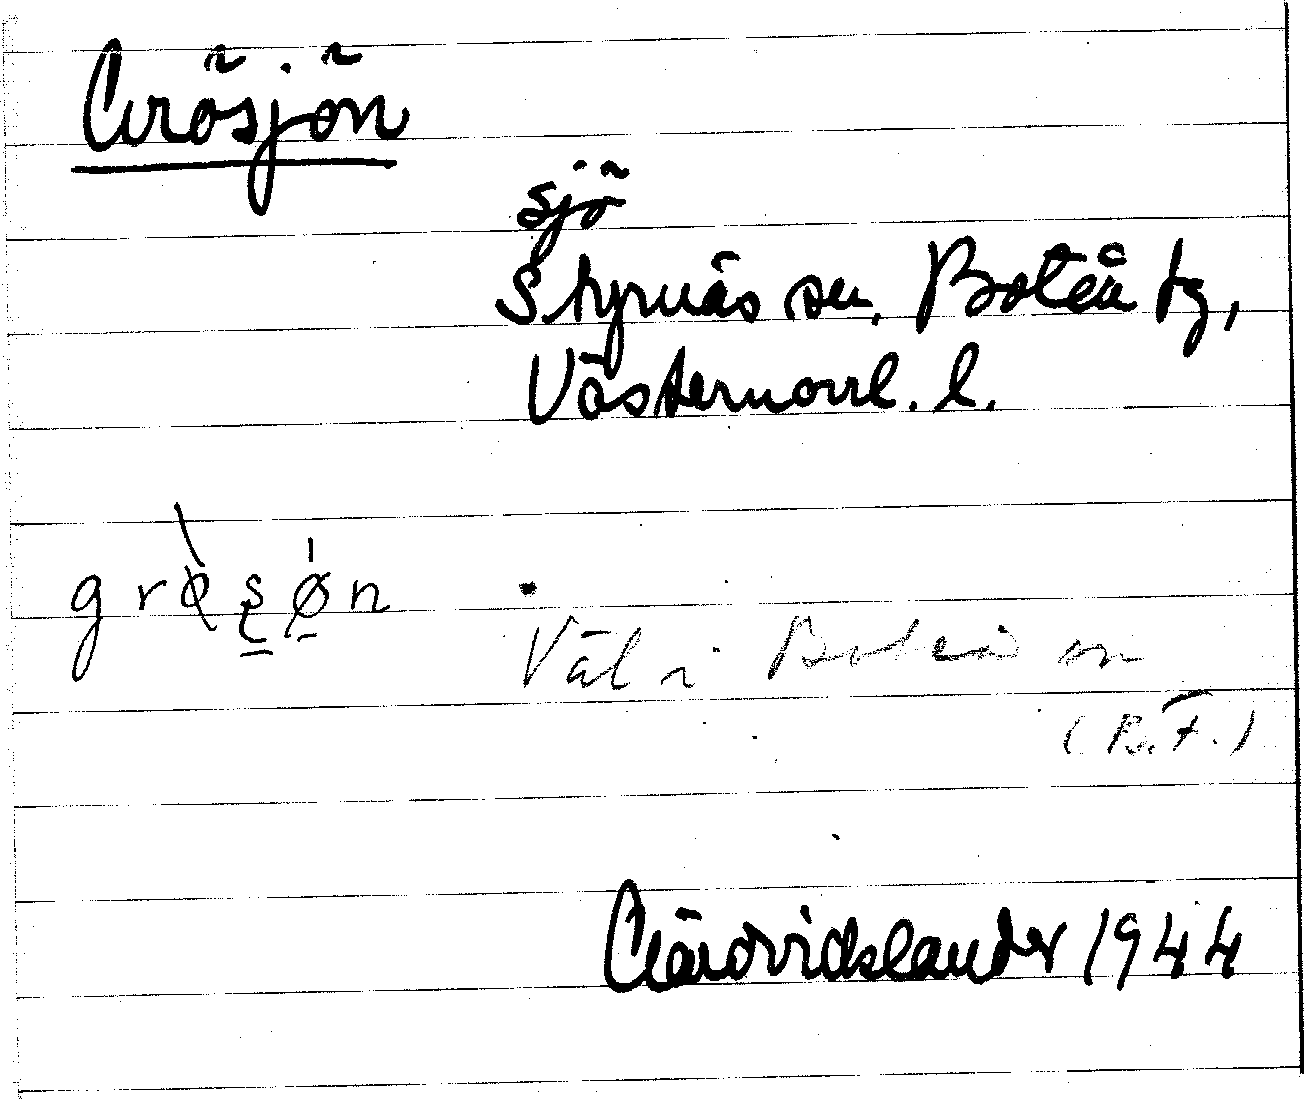 Grösjön
sjö
Styrnäs sn. Boteå tg,
Västernorrl. l.
grøsøn
Väl i Boteå sn
(B.F.)
Gärdvidslander 1944